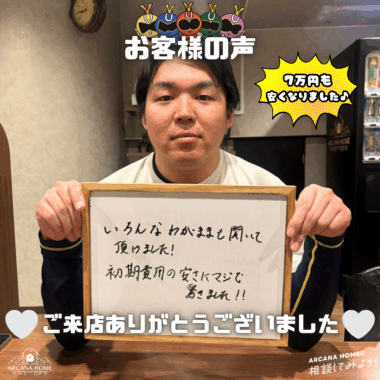 お客様の声
7万円も
安くなりました♪
いろんなわがままも聞いて
頂けました!
初期費用の安さにマジで
驚きました!!
ご来店ありがとうございました
ARCANA HOME
ARCANA HOMEに
相談してみよう!